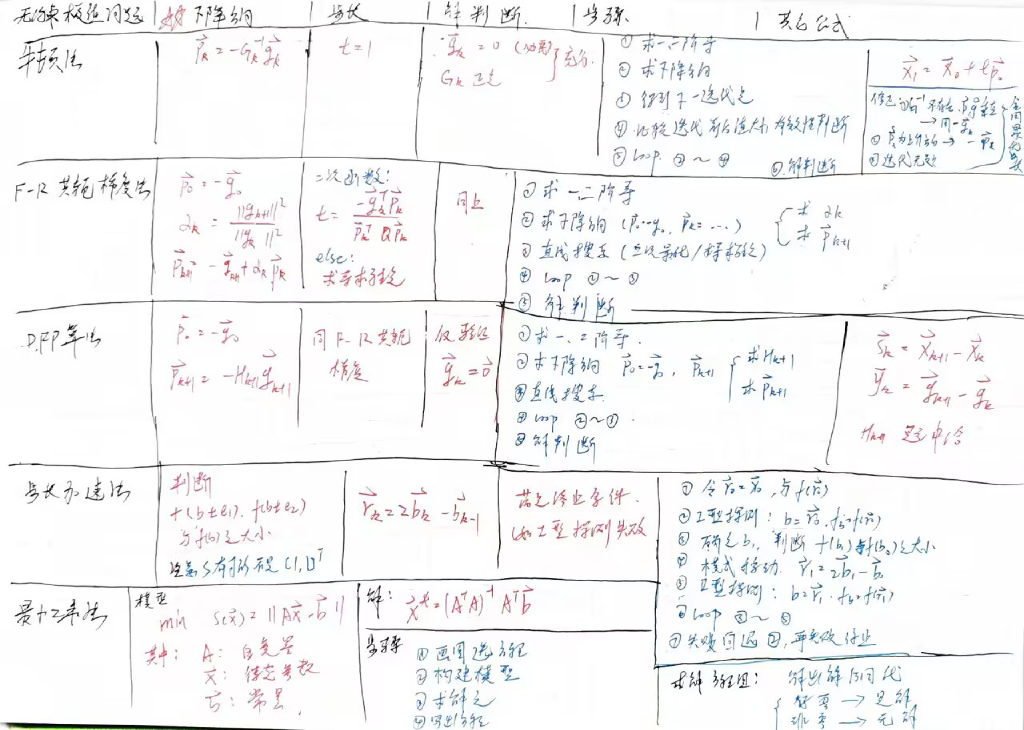 无约束极值问题 下降方向 步长 解判断 步骤 其它公式
牛顿法
p⃗k = -Gk⁻¹g⃗k
t = 1
g⃗k = 0 (必要) } 充分
Gk 正定
① 求一二阶导
② 求下降方向
③ 得到下一迭代点
④ 比较迭代前后值大小 有效性判断
⑤ Loop ②~④
⑥ 解判断
x⃗1 = x⃗0 + tp⃗0
修正 ① G⁻¹不存在
→ 用 -g⃗k
② p⃗k为上升方向 → -p⃗k
③ 迭代无效
F-R 共轭梯度法
p⃗0 = -g⃗0
αk = ||gk+1||² / ||gk||²
p⃗k+1 = -g⃗k+1 + αk p⃗k
二次函数:
t = -gkᵀPk / PkᵀQPk
else:
求导求驻点
同上
① 求一二阶导
② 求下降方向 (p⃗0=-g⃗0, p⃗k=...) { 求 αk
求 p⃗k+1
③ 直线搜索
④ Loop ②~③
⑤ 解判断
DFP算法
p⃗0 = -g⃗0
p⃗k+1 = -Hk+1g⃗k+1
同 F-R 共轭
梯度
仅验证
g⃗k = 0⃗
① 求一、二阶导
② 求下降方向 p⃗0=-g⃗0, p⃗k+1 { 求Hk+1
求p⃗k+1
③ 直线搜索
④ Loop ②~③
⑤ 解判断
s⃗k = x⃗k+1 - x⃗k
y⃗k = g⃗k+1 - g⃗k
Hk+1
步长加速法
判断
f(b±e1), f(b±e2)
与f(b)之大小
r⃗k = 2b⃗k - b⃗k-1
满足停止条件
(如工型探测失败
① 令 r⃗0 = x⃗0, 与 f(r⃗0)
② 工型探测: b=r⃗0, fb=f(r⃗0)
③ 确定b1, 判断 f(b1)与f(b0)之大小
④ 模式移动 r⃗1 = 2b⃗1 - b⃗0
⑤ 工型探测: b=r⃗1, fb=f(r⃗1)
⑥ Loop
⑦ 失败回退②, 再失败停止
最小二乘法
模型
min S(x⃗) = ||Ax⃗ - b⃗||
其中: A: 自变量
x⃗: 待定参数
b⃗: 常量
解: x⃗* = (AᵀA)⁻¹Aᵀb⃗
步骤
① 画图选方程
② 构建模型
③ 求解之
④ 写出方程
求解方程组: 解出解后回代
{ 符零 → 是解
非零 → 无解